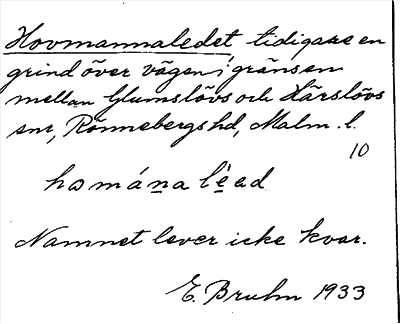 Hovmannaledet tidigare en
grind över vägen i gränsen
mellan Glumslövs och Härslövs
snr, Rönnebergs hd, Malm. l.
10
hɷmána léad
Namnet lever icke kvar.
E. Bruhn 1933